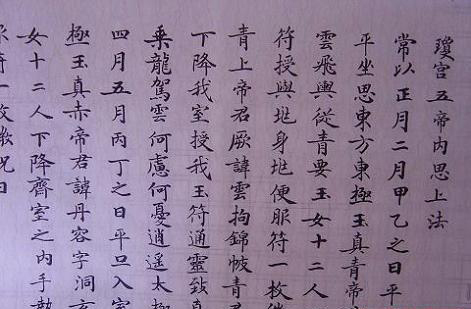 瓊宮五帝內思上法
常以正月二月甲乙之日平
平坐思東方東極玉真青帝
雲飛輿從青要玉女十二人
符授與垗身垗便服符一枚
青上帝君厥諱雲拘錦帔青
下降我室授我玉符通靈致真
乘龍駕雲何慮何憂逍遥太極
四月五月丙丁之日平旦入室
極玉真赤帝君諱丹容字洞玄
女十二人下降齋室之內手執
符一枚微祝曰